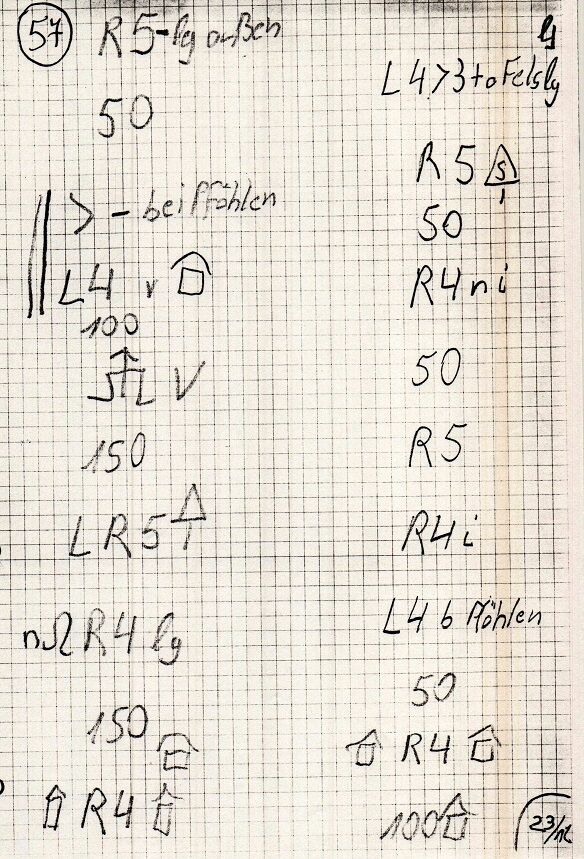 57 R 5-lg außen
50
> - bei Pföhlen
L4 v
100
V
150
L R 5
nΩ R4 lg
150
R4
lg
L4>3 to Felslg
R 5 s
50
R4 n i
50
R5
R4 i
L4 b Pföhlen
50
R4
100